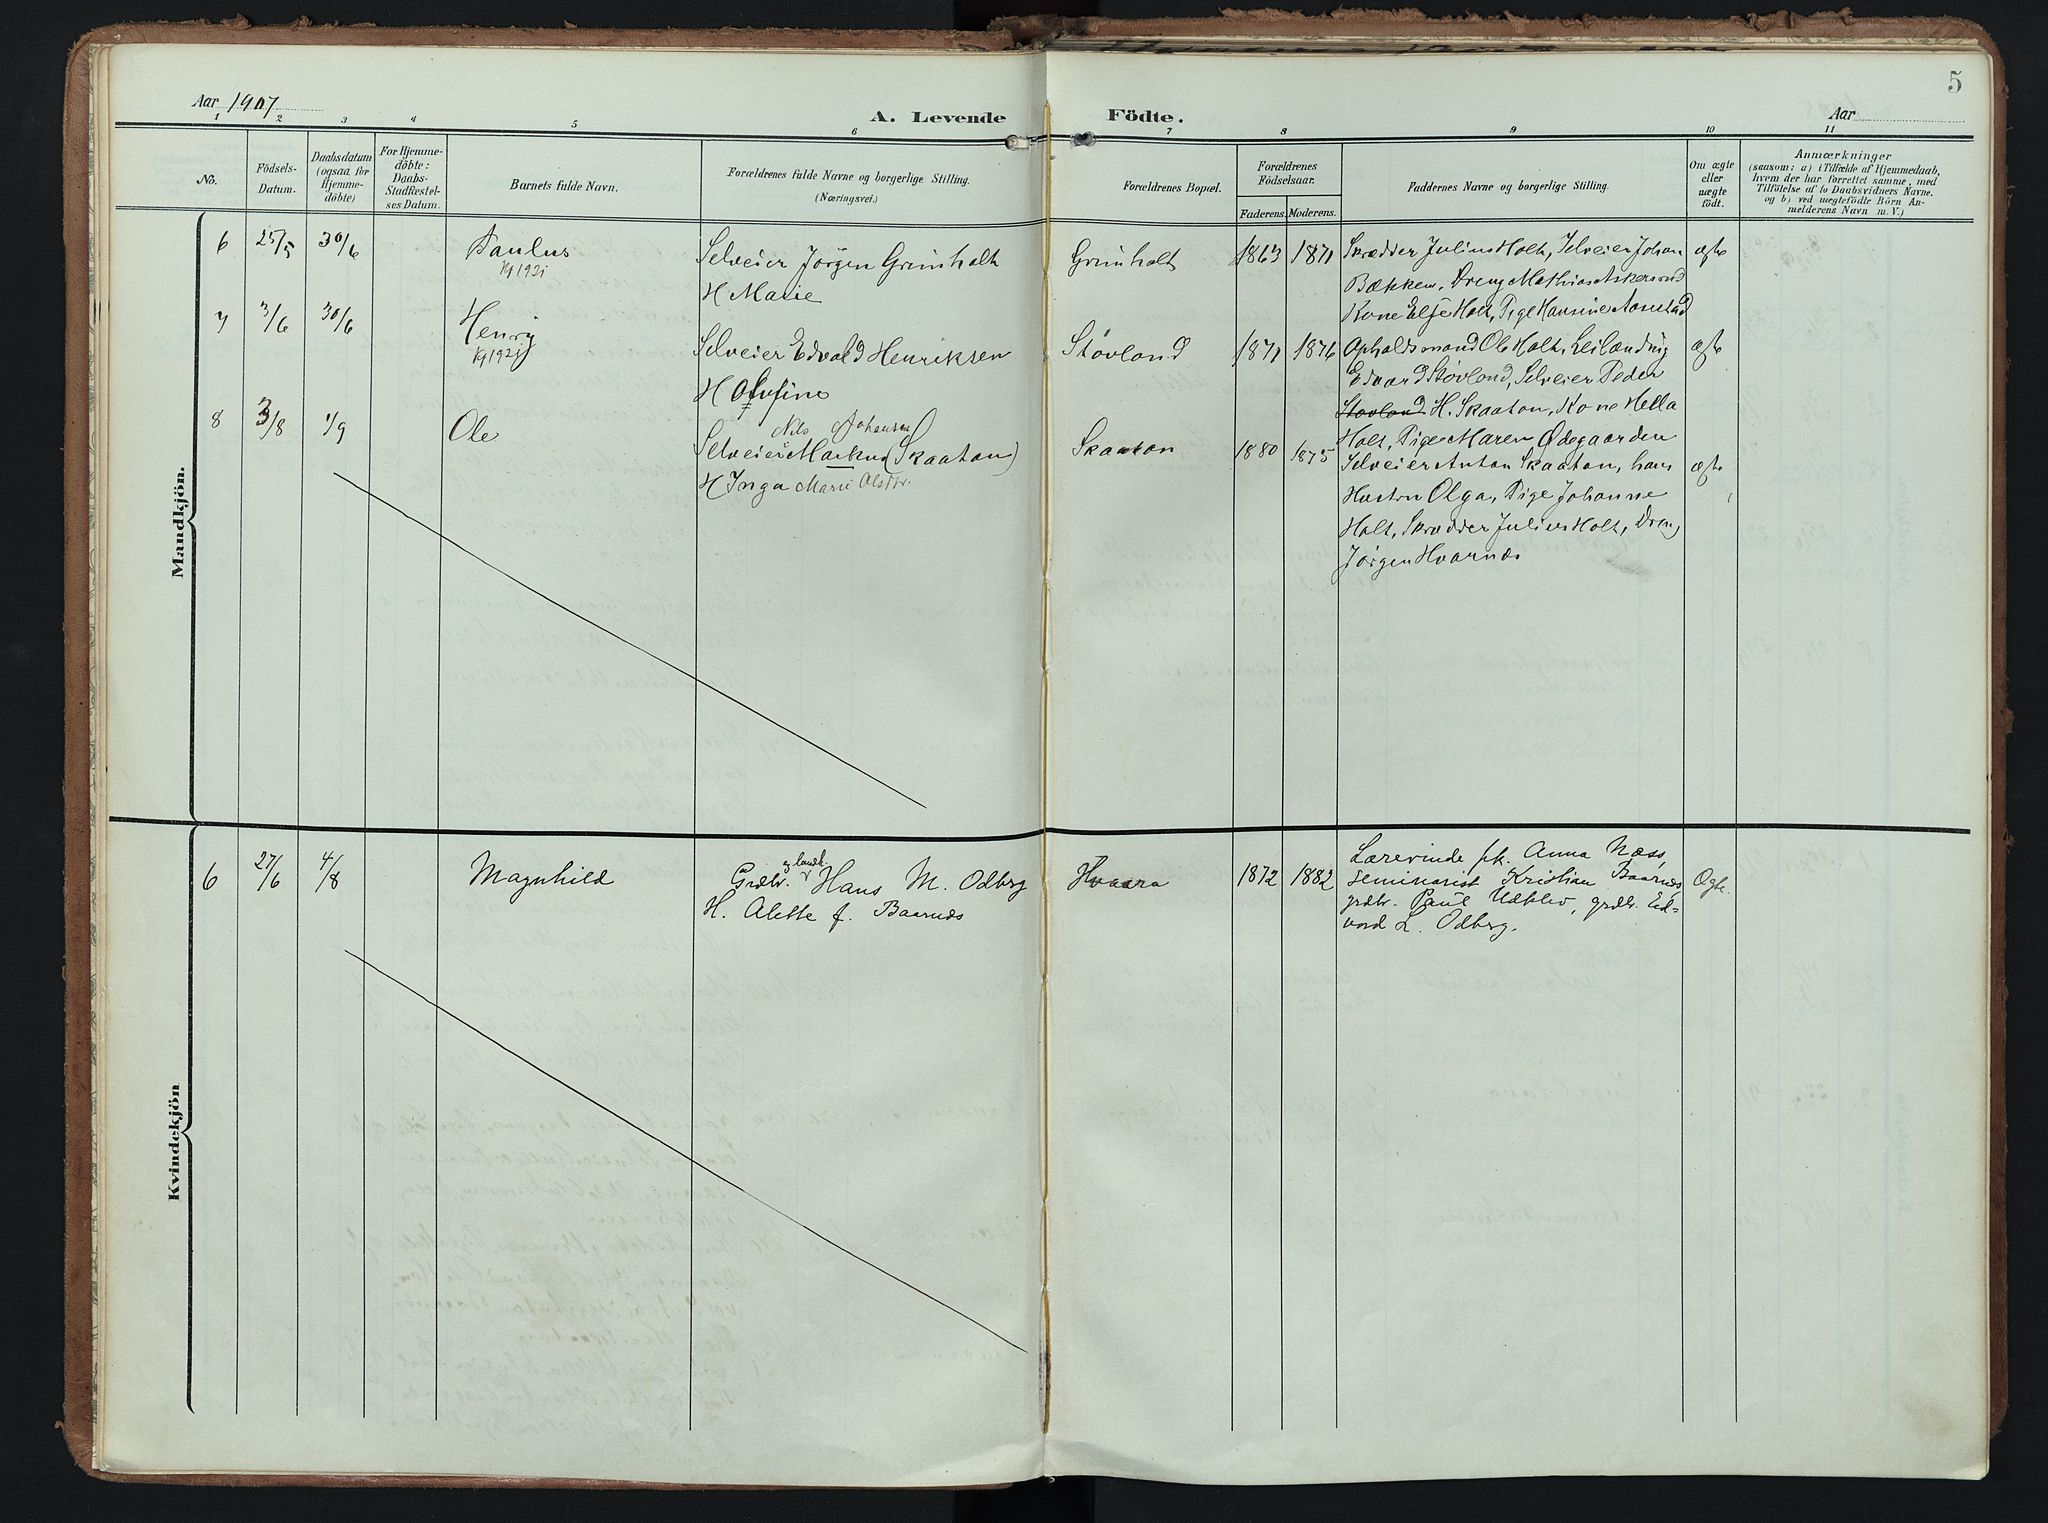 5
Aar 1907
A. Levende Födte.
Aar
1 2 3 4 5 6 7 8 9 10 11
No.
Födsels-
Datum.
Daabsdatum
(ogsaa for
Hjemme-
döbte)
For Hjemme-
döbte:
Daabs-
Stadfæstel-
ses Datum.
Barnets fulde Navn.
Forældrenes fulde Navne og borgerlige Stilling.
(Næringsvei.)
Forældrenes Bopæl.
Forældrenes
Födselsaar.
Faderens. Moderens.
Faddernes Navne og borgerlige Stilling.
Om ægte
eller
uægte
födt.
Anmærkninger
(saasom: a) i Tilfælde af Hjemmedaab,
hvem der har forrettet samme, med
Tilföielse af to Daabsvidners Navne.
og b) ved uægtefödte Börn An-
melderens Navn m. V.)
Mandkjön.
6 25/5 30/6 Paulus
Kf 1921
Selveier Jørgen Grimholt
H Marie
Grimholt 1863 1871
Skrædder Julius Holt, Selveier Johan
Bækken, Dreng Mathias Askersrud
Kone Elise Holt, Pige Hansine Aamstad
ægte
7 3/6 30/6 Henry
Kf 1921
Selveier Edvald Henriksen
H Olufine
Støvland 1871 1876
Opholdsmand Ole Holt, Leilænding
Edvard Støvland, Selveier Peder
Støvland H. Skaaton, Kone Hella
Holt, Pige Maren Ødegaarden
ægte
8 3/8 1/9 Ole
Nils Johansen
Selveier Markus (Skaaton)
H Inga Marie Olsdtr.
Skaaton 1880 1875
Selveier Anton Skaaton, hans
Hustru Olga, Pige Johanne
Holt, Skrædder Julius Holt, Dreng
Jørgen Hvarnæs
ægte
Kvindekjön
6 27/6 4/8 Magnhild
og landh.
Grdbr. Hans M. Odberg
H. Alette f. Baarnæs
Hvaara 1872 1882
Lærerinde frk. Anna Næss,
seminarist Kristian Baarnæs
grdbr. Paul Udklev, grdbr. Ed-
vard L. Odberg.
Ægte.